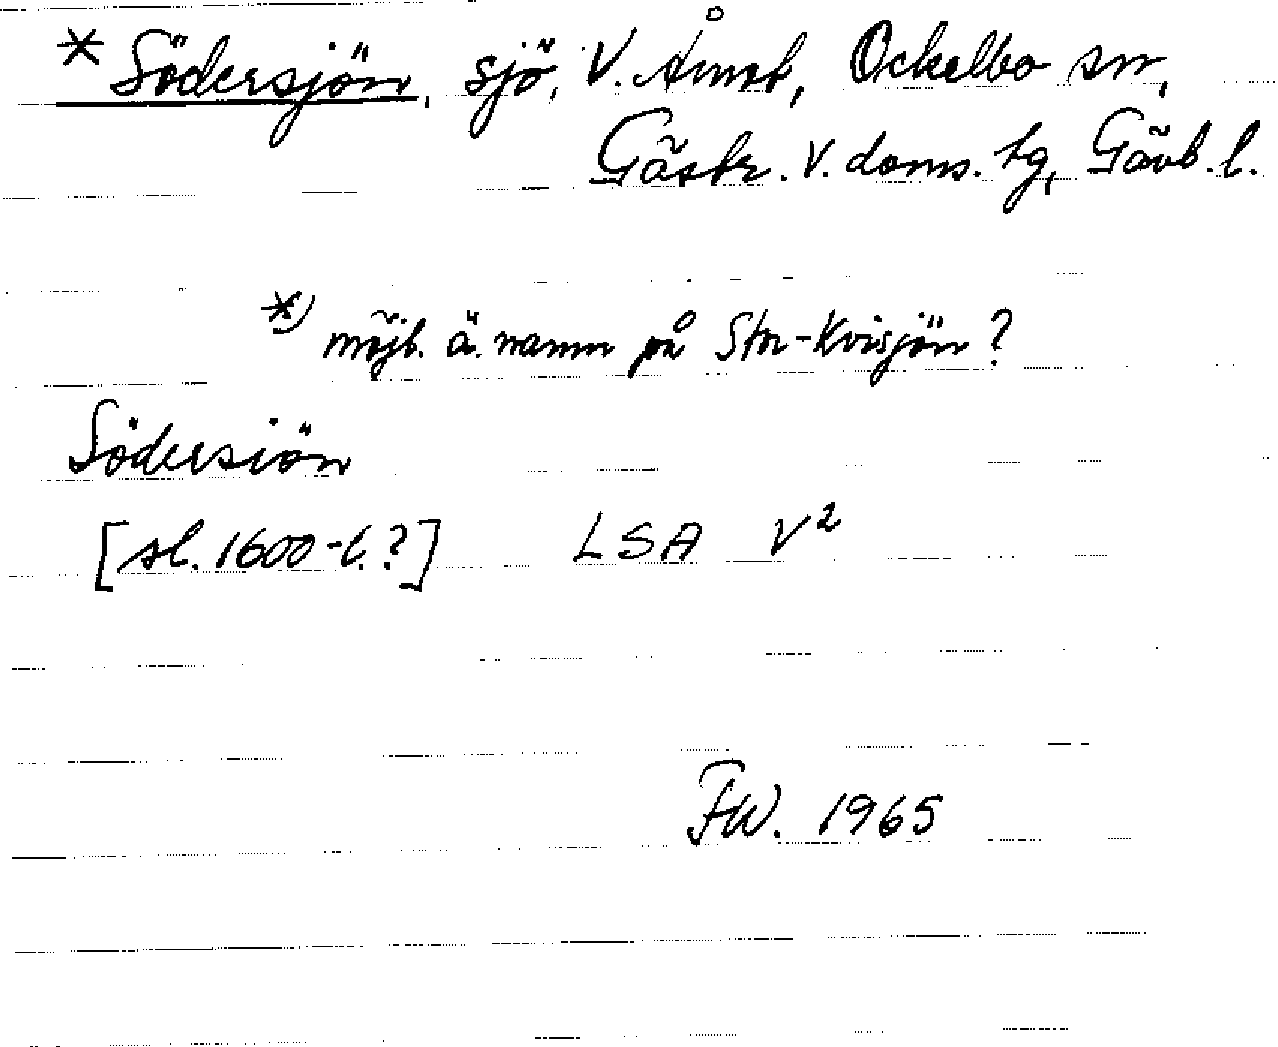 * Södersjön, sjö, V. Åmot, Ockelbo sn,
Gästr. V. doms. tg, Gävl. l.
*) möjl. ä. namn på Stor-Kvisjön?
Södersiön
[sl. 1600-t.?] LSA V²
FW. 1965